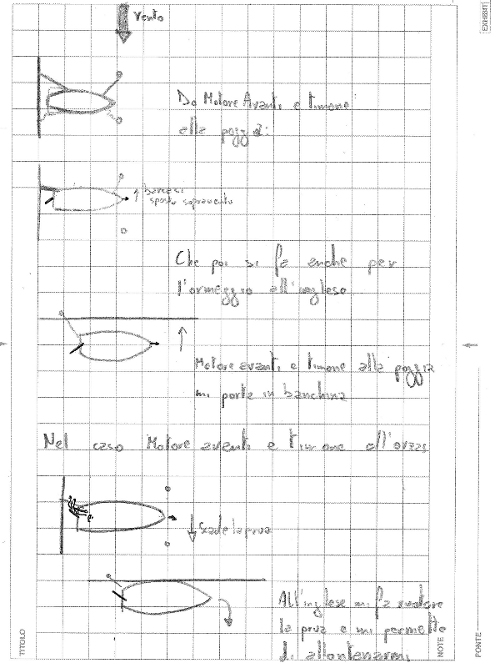 EXHIBIT
vento
Do Motore Avanti e timone
alla poggia:
barca si
sposta sopravento
Che poi si fa anche per
l'ormeggio all'inglese
Motore avanti e timone alla poggia
mi porta in banchina
Nel caso Motore avanti e timone all'orza
scade la prua
All'inglese mi fa scadere
la prua e mi permette
di allontanarmi
TITOLO
NOTE
FONTE